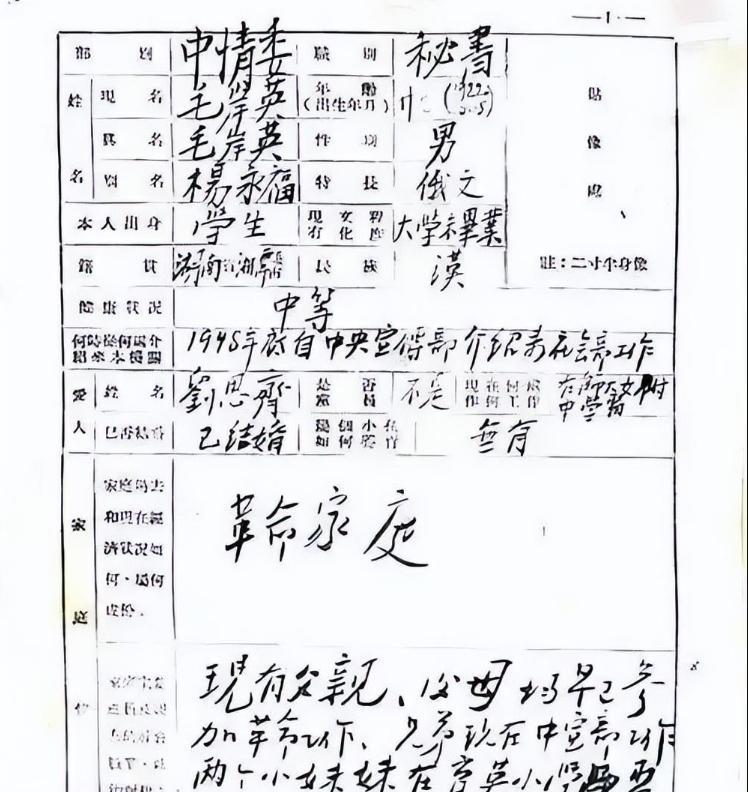 —1—
部 别 申情委 職 别 秘書
姓 現 名 毛岸英 年 齡 (出生年月)
貼
真 名 毛岸英 性 别 男
像
名 别 名 楊永福 特 長 俄文
處
本人出身 學生 現有文化程度 大学未畢業
籍 貫 湖南 湘 民 族 漢 註：二寸半身像
健康狀况 中等
何時從何處介紹來本機關 1948年底自中央宣傳部介绍来社會部工作
愛 姓 名 劉思齊 是否黨員 不是 現在何處作何工作 在師大女附中學習
人 已否結婚 已结婚 幾個小孩如何教育 無有
家庭過去
和現在經
家 濟狀况如 革命家庭
何，屬何
庭 成份，
現有父親、父母均早已参
加革命工作、兄弟现在中宣部工作
两个小妹妹在育英小學